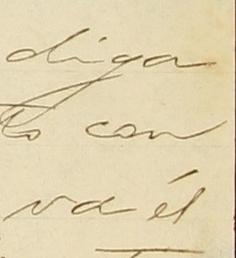 diga
to con
va él